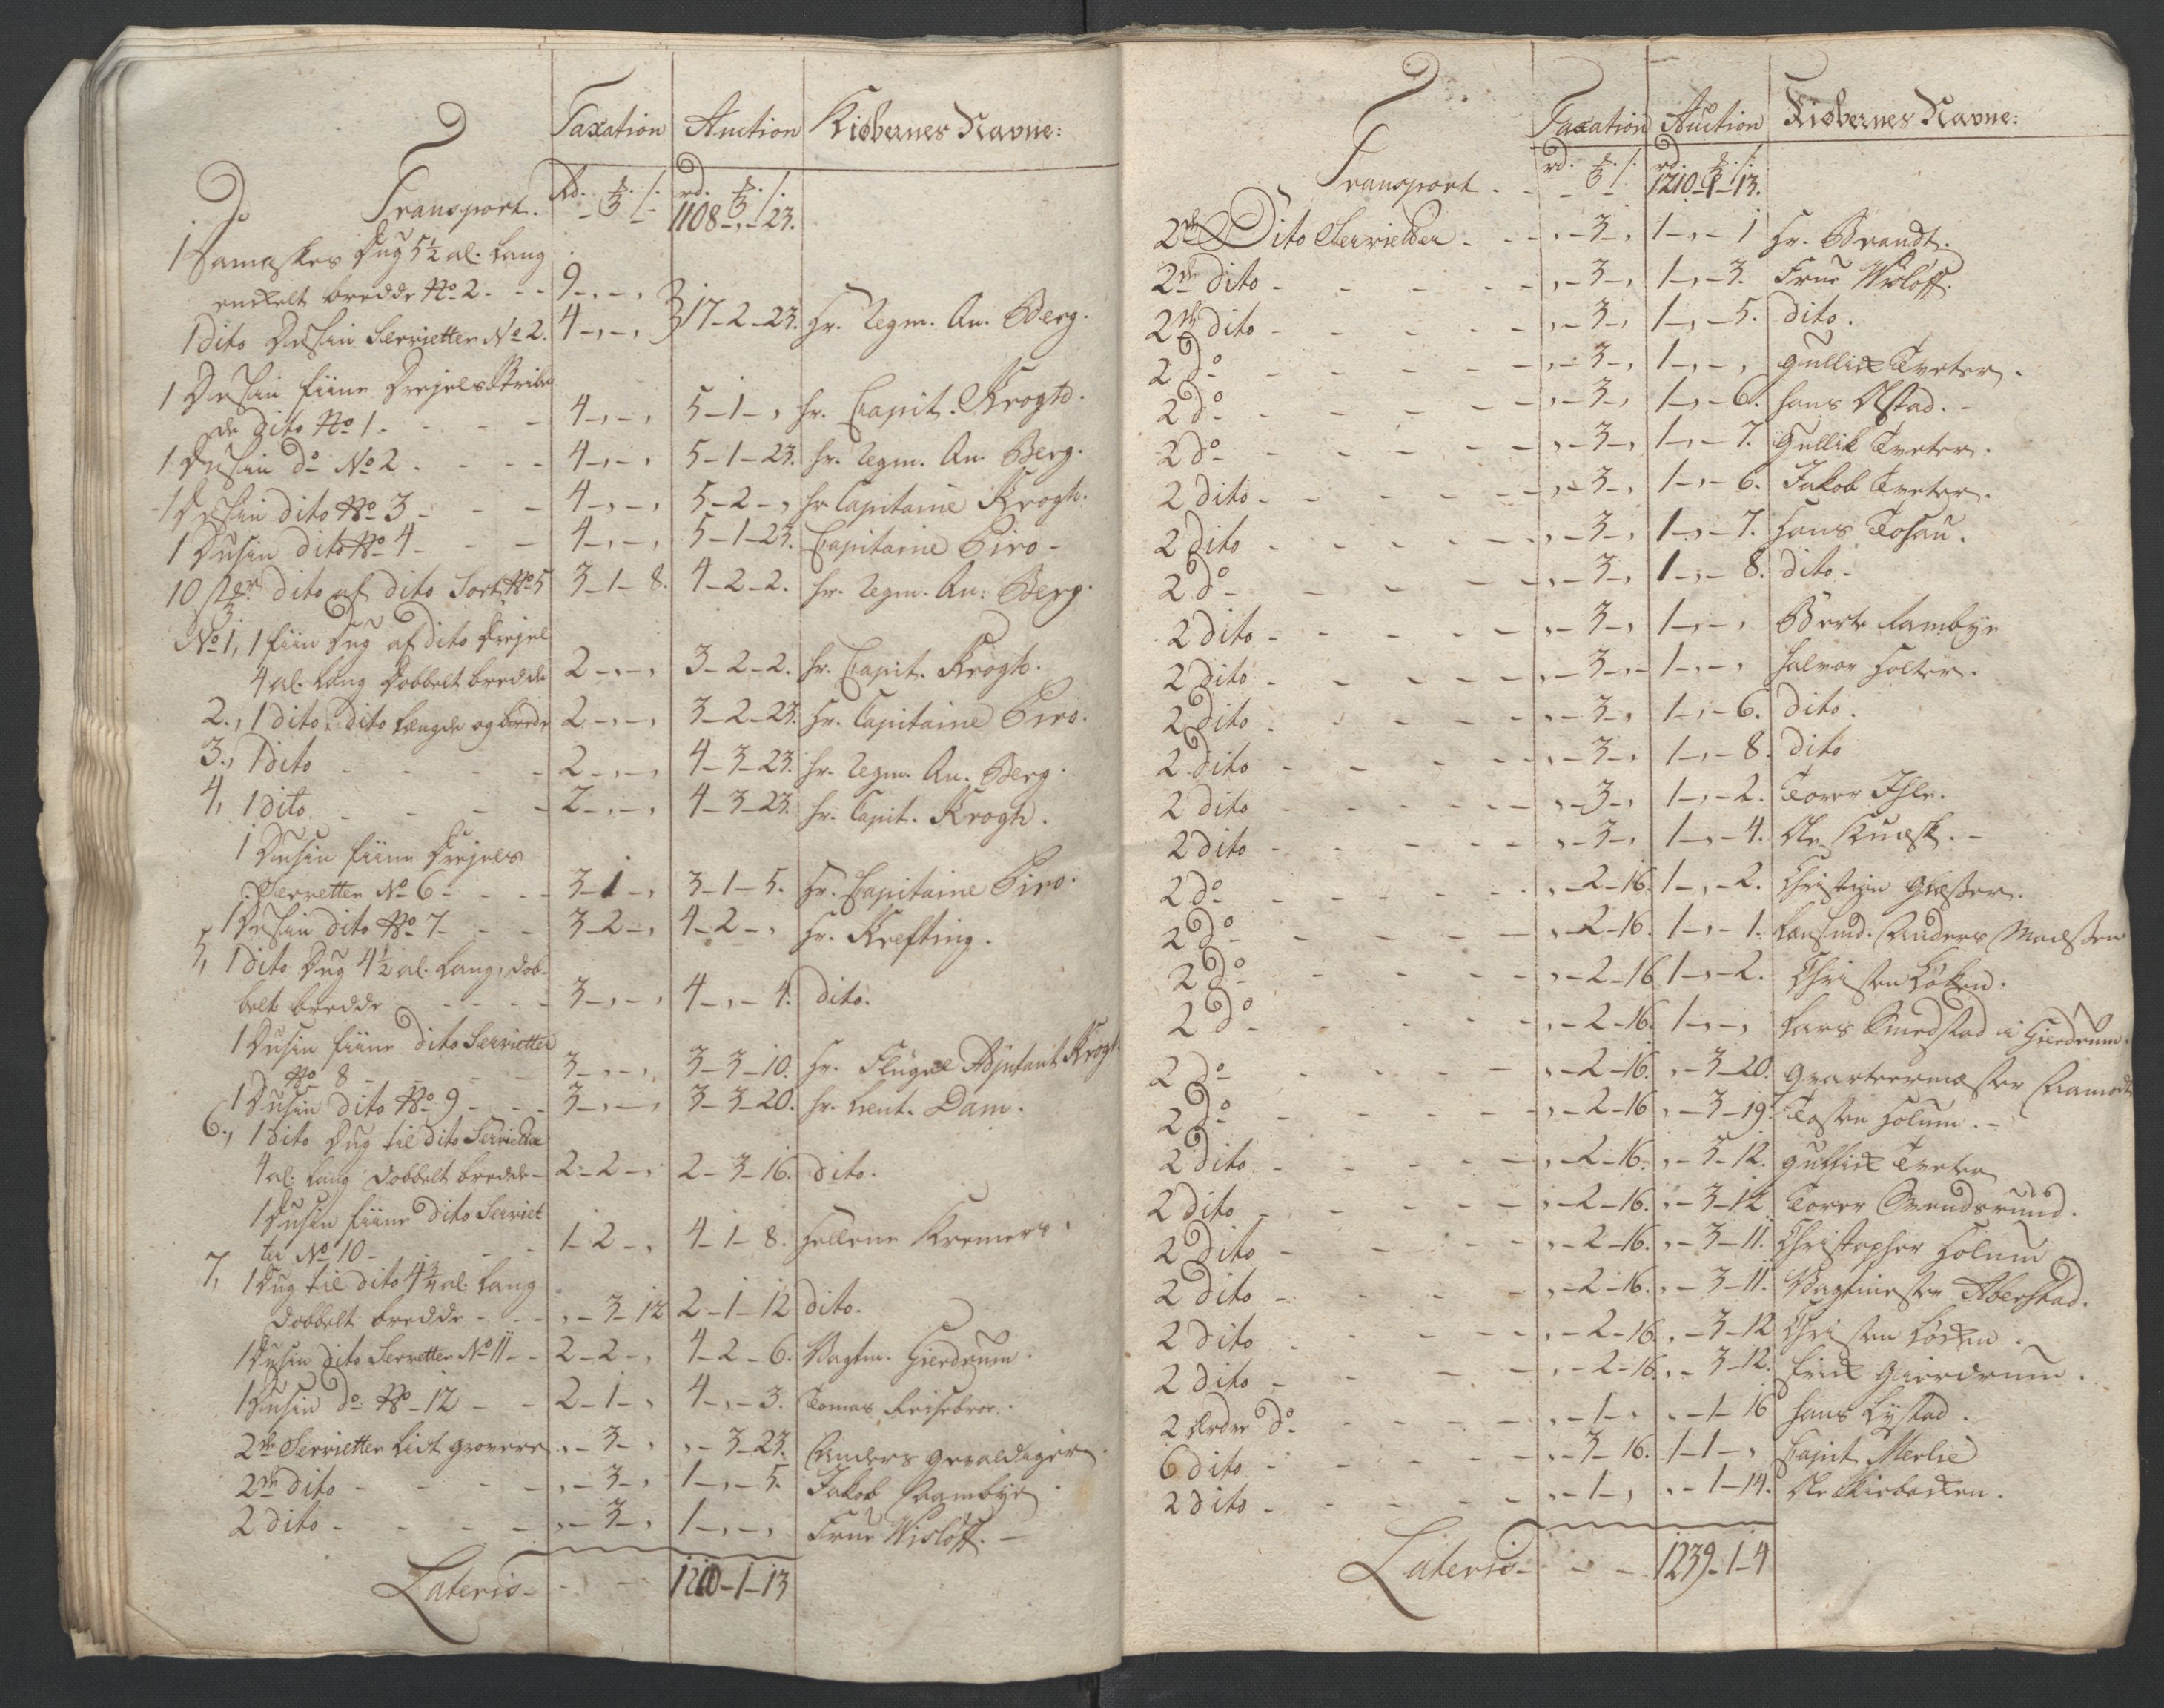 Taxation Auction Kiøbernes Navne:
Transport. Rd. ƶ. /. rd. ƶ. /.
1108-,-23.
1 Damaskes Dug 5½ al. lang
enckelt bredde No 2. - - 9-,-,
1 dito Dusin Servietter No 2. 4-,-, 17-2-23. Hr. Regm. Qu. Berg.
1 Dusin fiine Drejels Stribe
de dito No 1 - - - 4-,-, 5-1-, Hr. Capit. Krogh.
1 Dusin do No 2 - - - 4-,-, 5-1-23. Hr. Regm. Qu. Berg.
1 Dusin dito No 3 - - - 4-,-, 5-2-, Hr Capitaine Krogh.
1 Dusin dito No 4 - - - 4-,-, 5-1-23. Capitaine Piro -
10 st. dito af dito Sort No 5 3-1-8. 4-2-2. Hr. Regm. Qu: Berg.
No 1, 1 fiin Dug af dito Drejel
4 al. lang Dobbelt bredde 2-,-, 3-2-2. Hr. Capit. Krogh.
2., 1 dito, dito længde og brede 2-,-, 3-2-23. Hr. Capitaine Piro.
3., 1 dito - - - 2-,-, 4-3-23. Hr. Regm. Qu. Berg.
4, 1 dito - - - 2-,-, 4-3-23. Hr. Capit. Krogh.
1 Dusin fiine Drejels
Servetter No 6 - - - 3-1-, 3-1-5. Hr. Capitaine Piro.
1 Dusin dito No 7 - - - 3-2-, 4-2-, Hr. Krefting.
5, 1 dito Dug 4½ al. lang, dob-
belt bredde - - - 3-,-, 4-,-4. dito.
1 Dusin fiine dito Servietter
No 8 - - - 3-,-, 3-3-10. Hr. Flügel Adjutant Krogh
1 Dusin dito No 9 - - - 3-,-, 3-3-20. Hr. Lieut. Dam.
6., 1 dito Dug til dito Servietter
4 al. lang dobbelt bredde - 2-2-, 2-3-16. dito.
1 Dusin fiine dito Serviet
ter No 10 - - - 1-2-, 4-1-8. Hellene Kremers.
7, 1 Dug til dito 4¾ al. lang
dobbelt bredde - - - ,-3-12 2-1-12 dito.
1 Dusin dito Servetter No 11 - - 2-2-, 4-2-6. Wagtm. Gierdrum.
1 Dusin do No 12 - - 2-1-, 4-,-3. Tomas Reisebroe.
2 Servietter lidt grovere ,-3-, ,-3-23. Anders Gevaldiger.
2 dito - - - ,-3-, 1-,-5. Jakob Rambye.
2 dito - - - ,-3-, 1-,-, Frue Wisløff. -
Lateris - - - 1210-1-13
Taxation Auction Kiøbernes Navne:
Transport - rd. ƶ. /. rd. ƶ. /.
1210-1-13.
2 Dito Servietter - - ,-3-, 1-,-1 Hr. Brandt.
2 dito - - - ,-3-, 1-,-3. Frue Wisløff.
2 dito - - - ,-3-, 1-,-5. dito.
2 do - - - ,-3-, 1-,-, Gullick Tveter.
2 do - - - ,-3-, 1-,-6. Hans Ilstad. -
2 do - - - ,-3-, 1-,-7. Gullik Tveter.
2 dito - - - ,-3-, 1-,-6. Jakob Tveter.
2 dito - - - ,-3-, 1-,-7. Hans Tosau.
2 do - - - ,-3-, 1-,-8. dito -
2 dito - - - ,-3-, 1-,-, Berte Rambye
2 dito - - - ,-3-,- 1-,-, Halvor Holter.
2 dito - - - ,-3-, 1-,-6. dito.
2 dito - - - ,-3-, 1-,-8. dito
2 dito - - - ,-3-, 1-,-2. Torer Ihle.
2 dito - - - ,-3-, 1-,-4. Ole Kulsk. -
2 do - - - ,-2-16. 1-,-2. Christian Glæsser.
2 do - - - ,-2-16. 1-,-1. Lænsmd. Anders Madssen
2 do - - - ,-2-16 1-,-2. Christen Løken.
2 do - - - ,-2-16. 1-,-, Lars Smedstad i Gierdrum.
2 do - - - ,-2-16. ,-3-20. Qvarteermæster Aamodt
2 do - - - ,-2-16 ,-3-19. Tosten Holum. -
2 dito - - - ,-2-16. ,-3-12. Gullick Tveter
2 dito - - - ,-2-16. ,-3-12. Torer Svendsrud.
2 dito - - - ,-2-16. ,-3-11. Christopher Holum
2 dito - - - ,-2-16. ,-3-11. Wagtmester Aberstad.
2 dito - - - ,-2-16. ,-3-12 Christen Løcken.
2 dito - - - ,-2-16. ,-3-12. Erick Gierdrum.
2 do - - - ,-1-, ,-1-16 Hans Lystad.
6 dito - - - ,-3-16. 1-1-, Capit Merlie
2 dito - - - ,-1-, ,-1-14. Ole Kiebacken.
Lateris - - - 1239-1-4